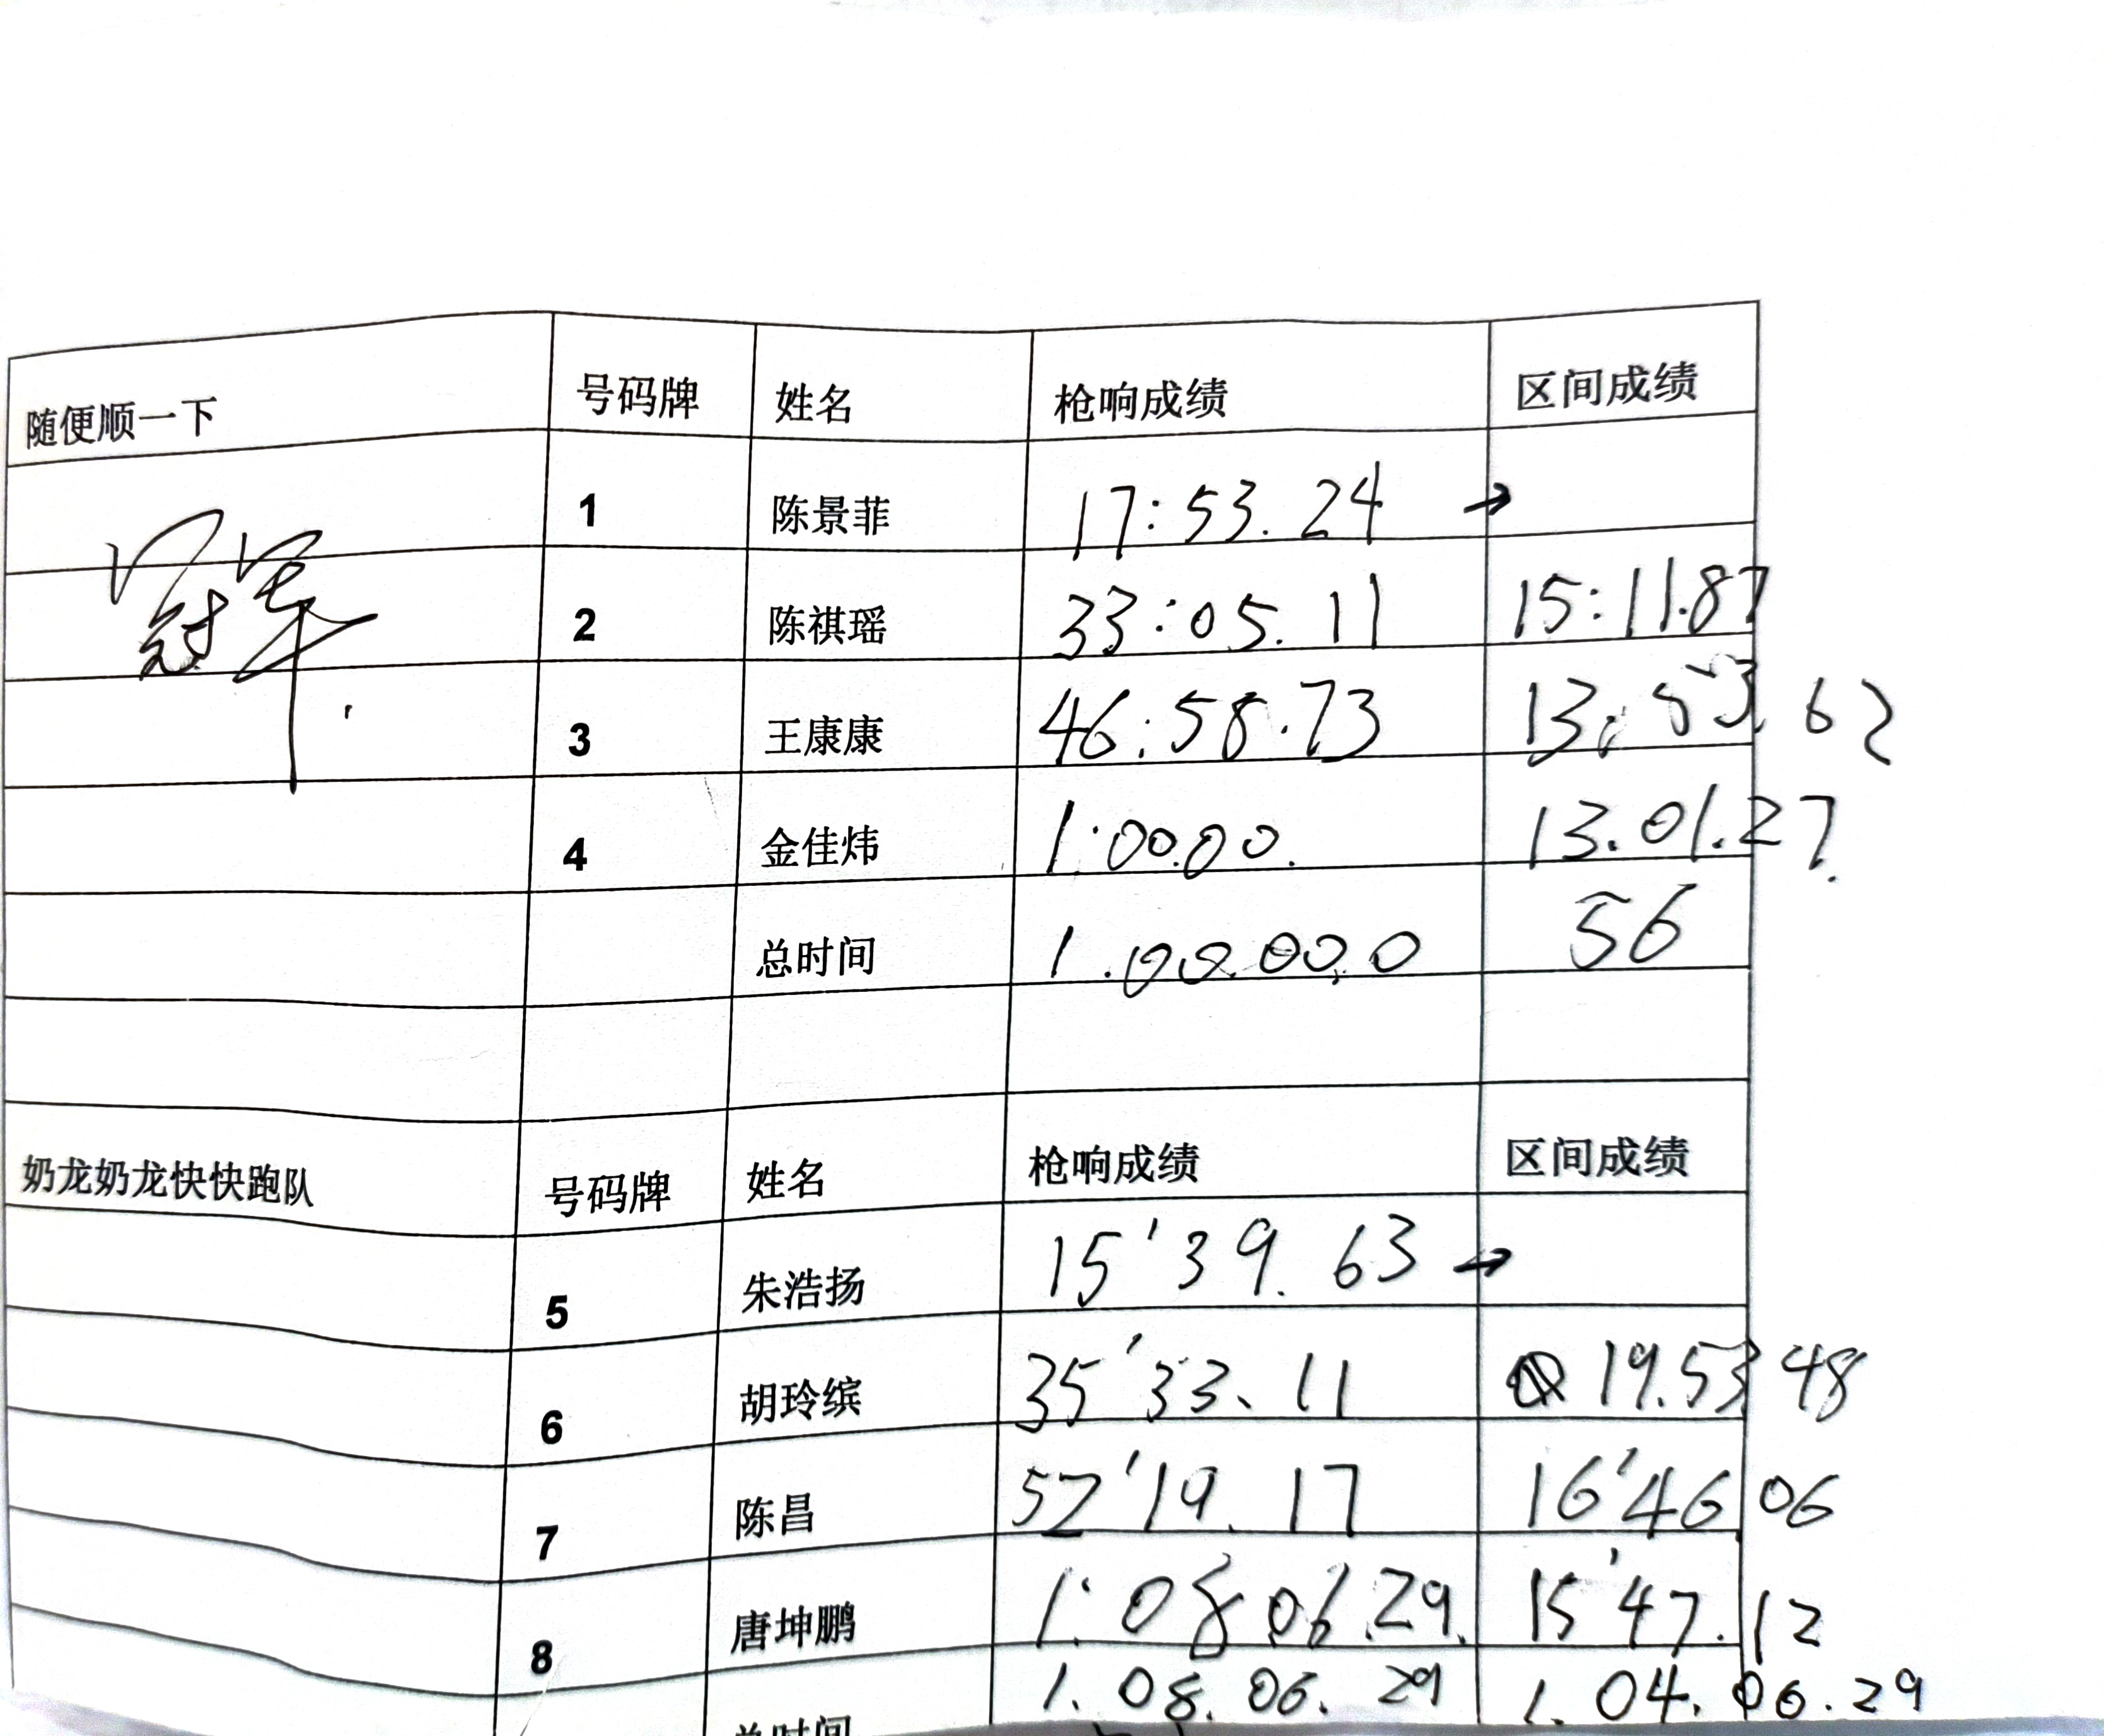 随便顺一下 号码牌 姓名 枪响成绩 区间成绩
1 陈景菲 17:53.24 →
冠军.
2 陈祺瑶 33:05.11 15:11.87
3 王康康 46:58.73 13:53.62
4 金佳炜 1:00.00. 13.01.27.
总时间 1.00.00.0 56
奶龙奶龙快快跑队 号码牌 姓名 枪响成绩 区间成绩
5 朱浩扬 15'39.63 →
6 胡玲缤 35'33.11 19.53 48
7 陈昌 52'19.17 16'46 06
8 唐坤鹏 1:08 06.29. 15'47.12
总时间 1.08.06.29 1.04.06.29